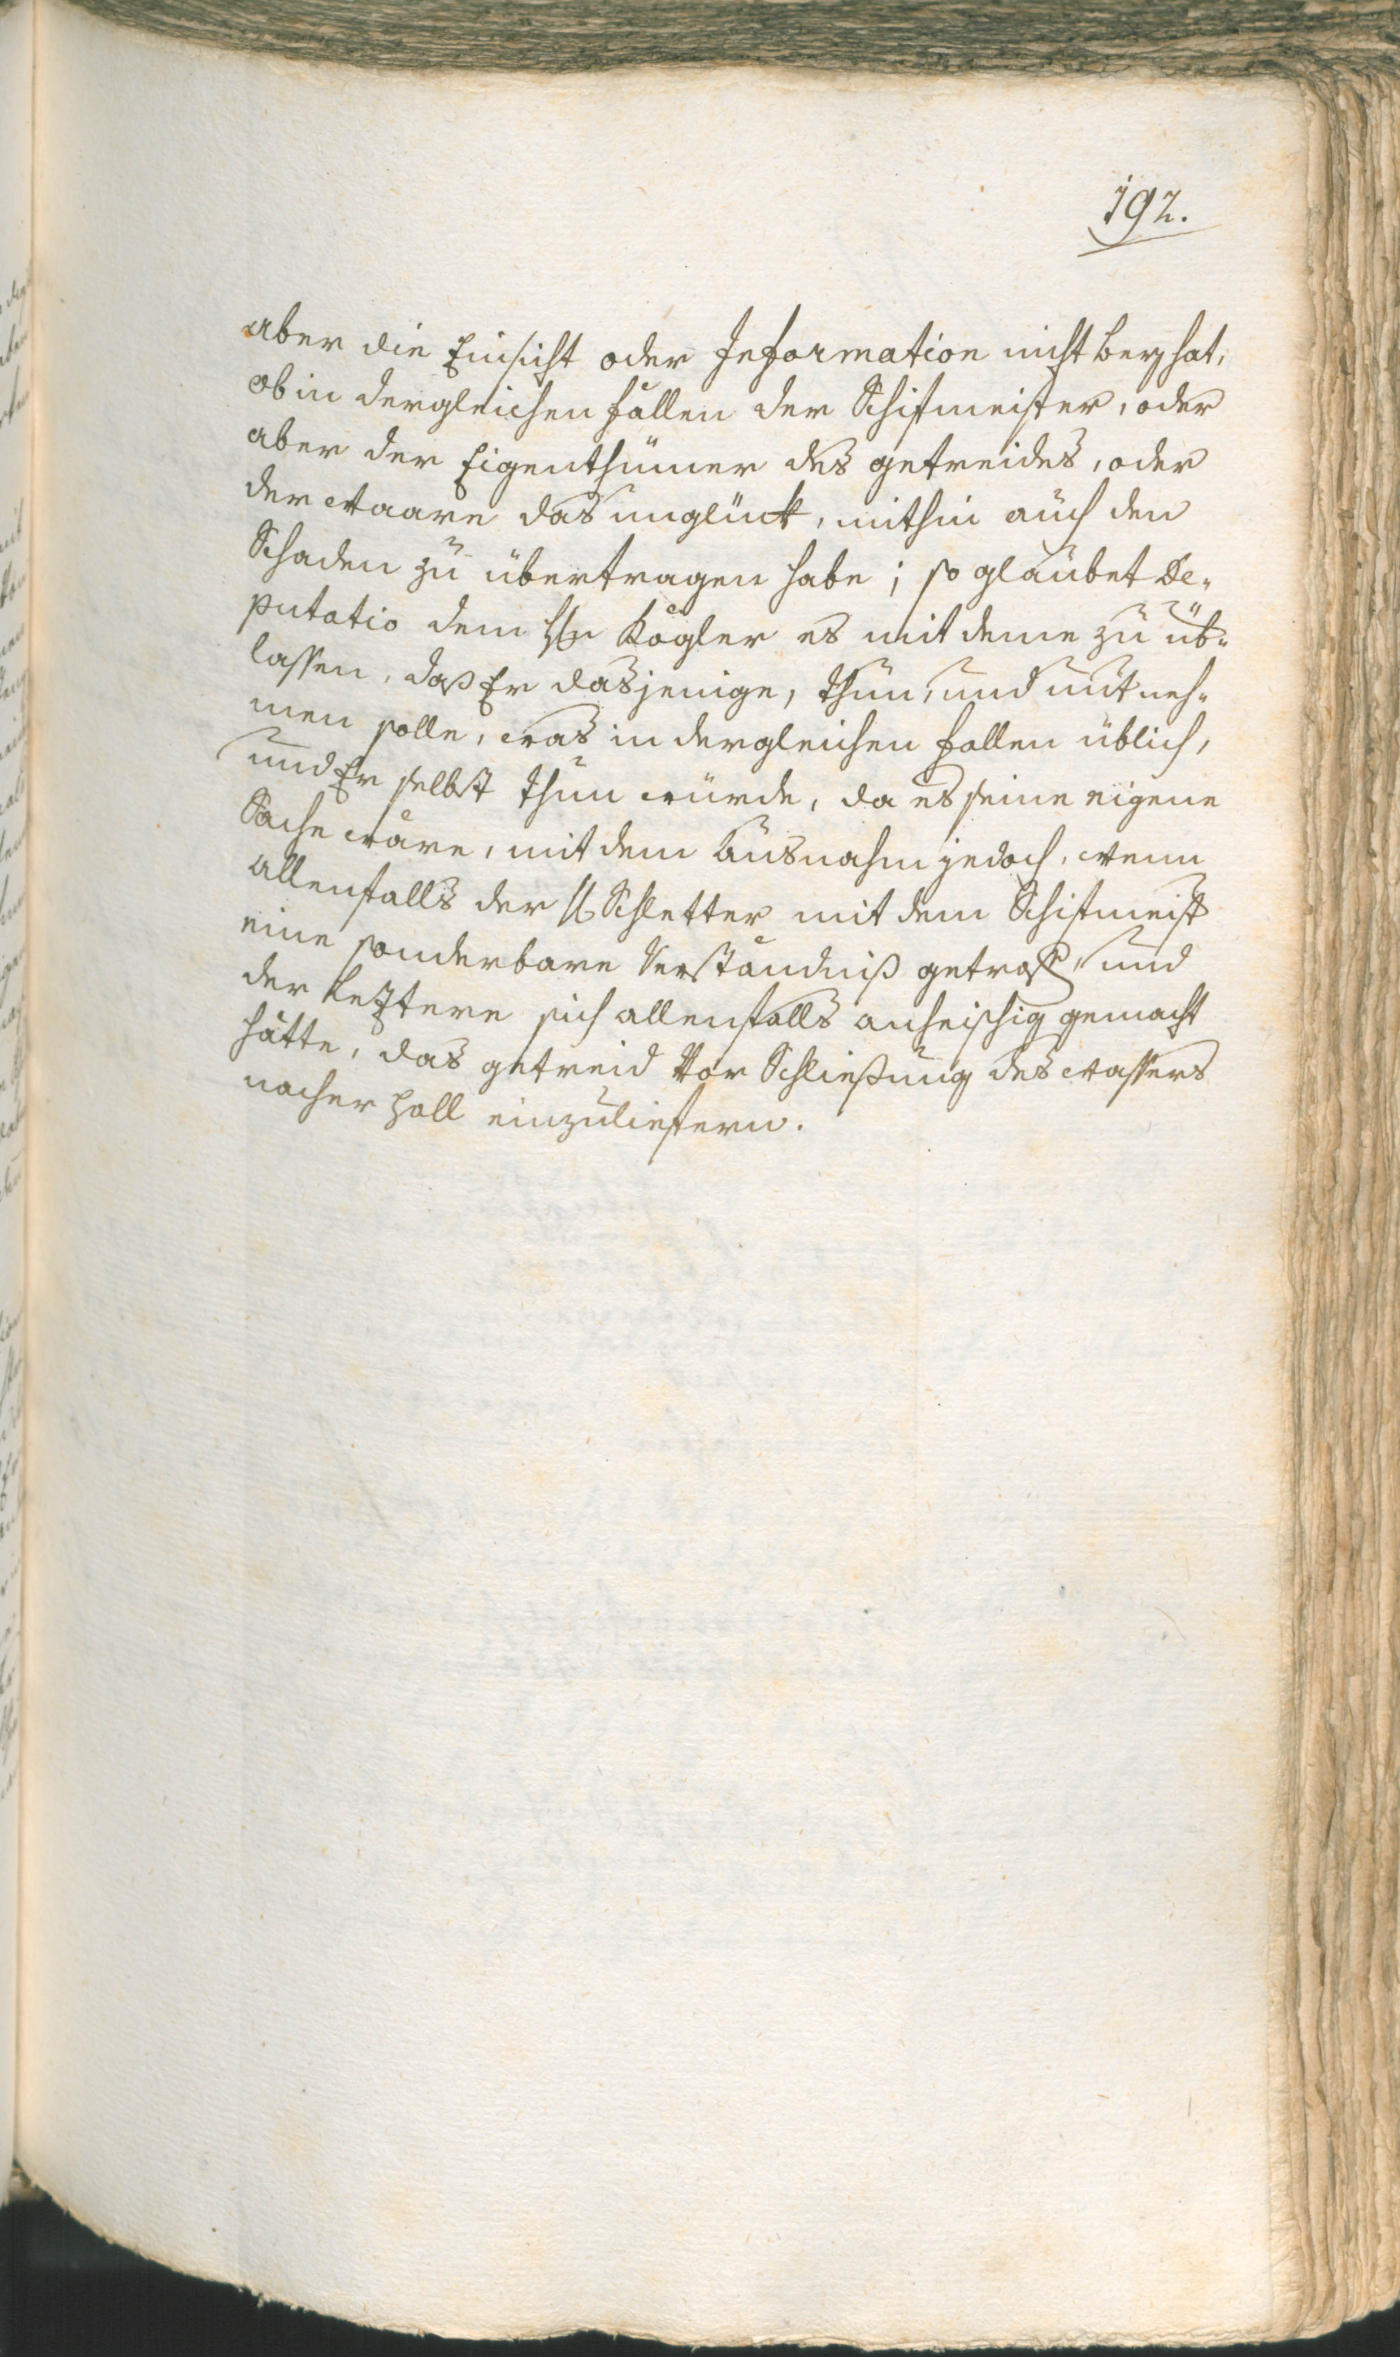 192.
aber die Einsicht oder Information nicht bey hat,
ob in dergleichen fällen der Schifmeister, oder
aber der Eigenthümer des getreides, oder
der Waare das unglück, mithin auch den
Schaden zu übertragen habe; so glaubet De-
putatio dem H: Kögler es mit deme zu üb-
lassen, daß Er dasjenige, thun, und mit neh-
men solle, was in dergleichen fallen üblich,
und Er selbst thun würde, da es seine eigene
Sache wäre, mit dem Ausnahm jedoch, wenn
allenfalls der H: Schletter mit dem Schifmeist
eine sonderbare Verständniß getrof, und
der leztere sich allenfalls anheischig gemacht
hätte, das getreid Vor Schließung des Wassers
nacher Hall einzuliefern.